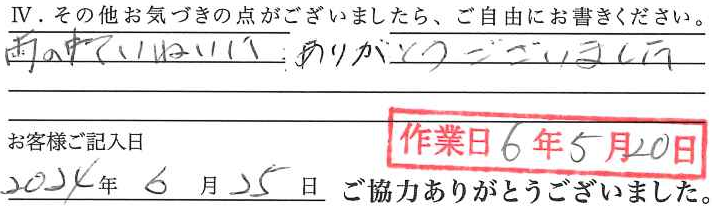 Ⅳ．その他お気づきの点がございましたら、ご自由にお書きください。
雨の中ていねいに ありがとうございました
お客様ご記入日
作業日 6年5月20日
2024年 6月25日 ご協力ありがとうございました。